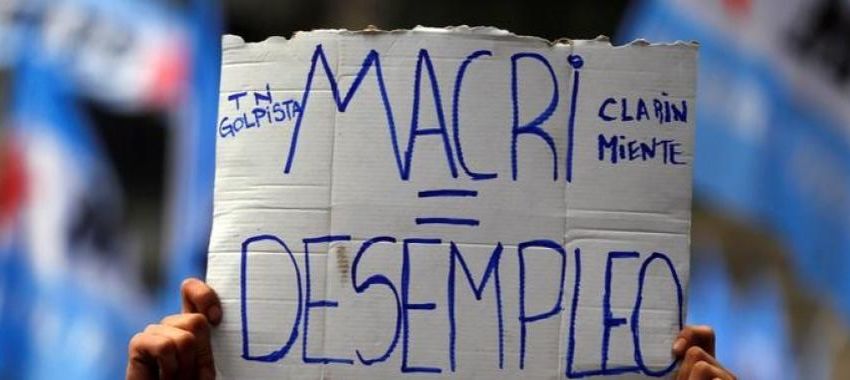 TN
GOLPISTA
MACRi
CLARIN
MiENTE
=
DESEMPLEO